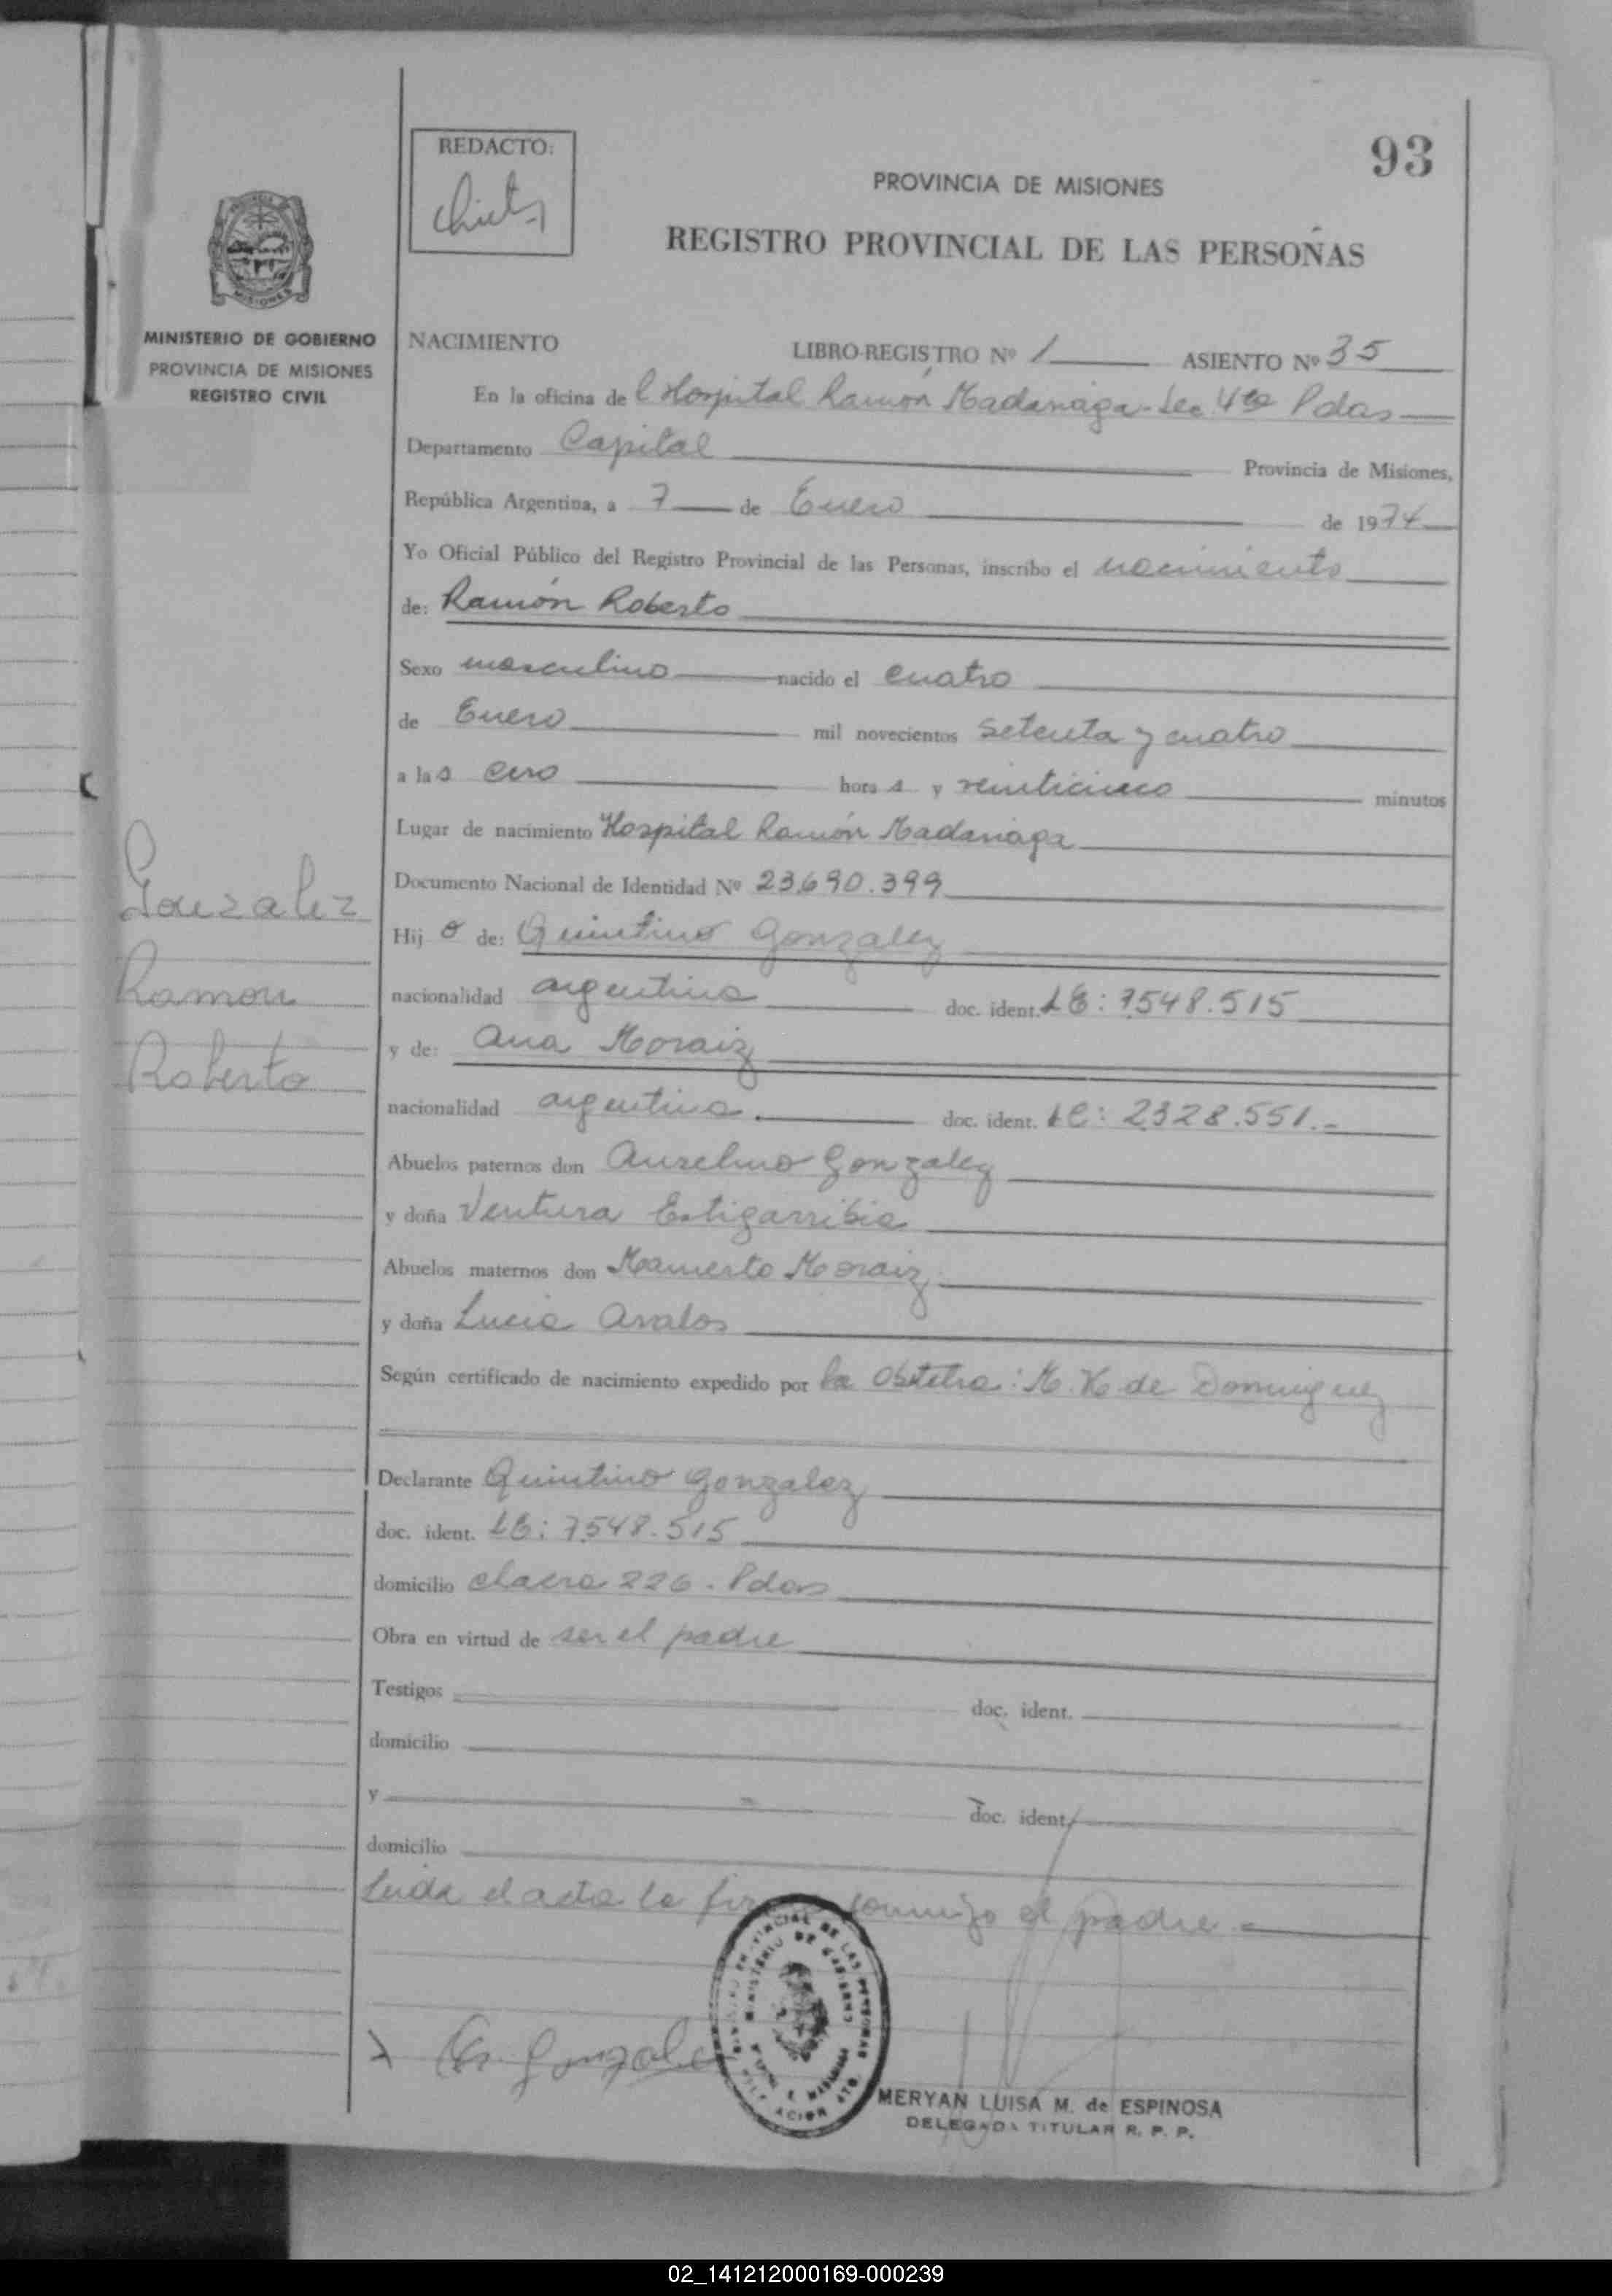 93
REDACTO:
PROVINCIA DE MISIONES
REGISTRO PROVINCIAL DE LAS PERSONAS
MISIONES
MINISTERIO DE GOBIERNO
PROVINCIA DE MISIONES
REGISTRO CIVIL
NACIMIENTO LIBRO-REGISTRO Nº 1 ASIENTO Nº 35
En la oficina de l Hospital Ramón Madariaga - Sec 4ta Pdas
Departamento Capital Provincia de Misiones,
República Argentina, a 7 de Enero de 1974
Yo Oficial Público del Registro Provincial de las Personas, inscribo el nacimiento
de: Ramón Roberto
Sexo masculino nacido el cuatro
de Enero mil novecientos setenta y cuatro
a las cero horas y veinticinco minutos
Lugar de nacimiento Hospital Ramón Madariaga
Documento Nacional de Identidad Nº 23.690.399
Gonzalez
Ramon
Roberto
Hijo de: Quintino Gonzalez
nacionalidad argentina doc. ident. LE: 7.548.515
y de: Ana Moraiz
nacionalidad argentina. doc. ident. LC: 2.328.551.-
Abuelos paternos don Anselmo Gonzalez
y doña Ventura Estigarribia
Abuelos maternos don Mamerto Moraiz
y doña Lucia Avalos
Según certificado de nacimiento expedido por la Obstetra: M. H. de Dominguez
Declarante Quintino Gonzalez
doc. ident. LE: 7.548.515
domicilio chacra 226. Pdas
Obra en virtud de ser el padre
Testigos doc. ident.
domicilio
y doc. ident.
domicilio
Leida el acta la firma conmigo el padre.-
Gonzalez
MERYAN LUISA M. de ESPINOSA
DELEGADA TITULAR R. P. P.
02_141212000169-000239